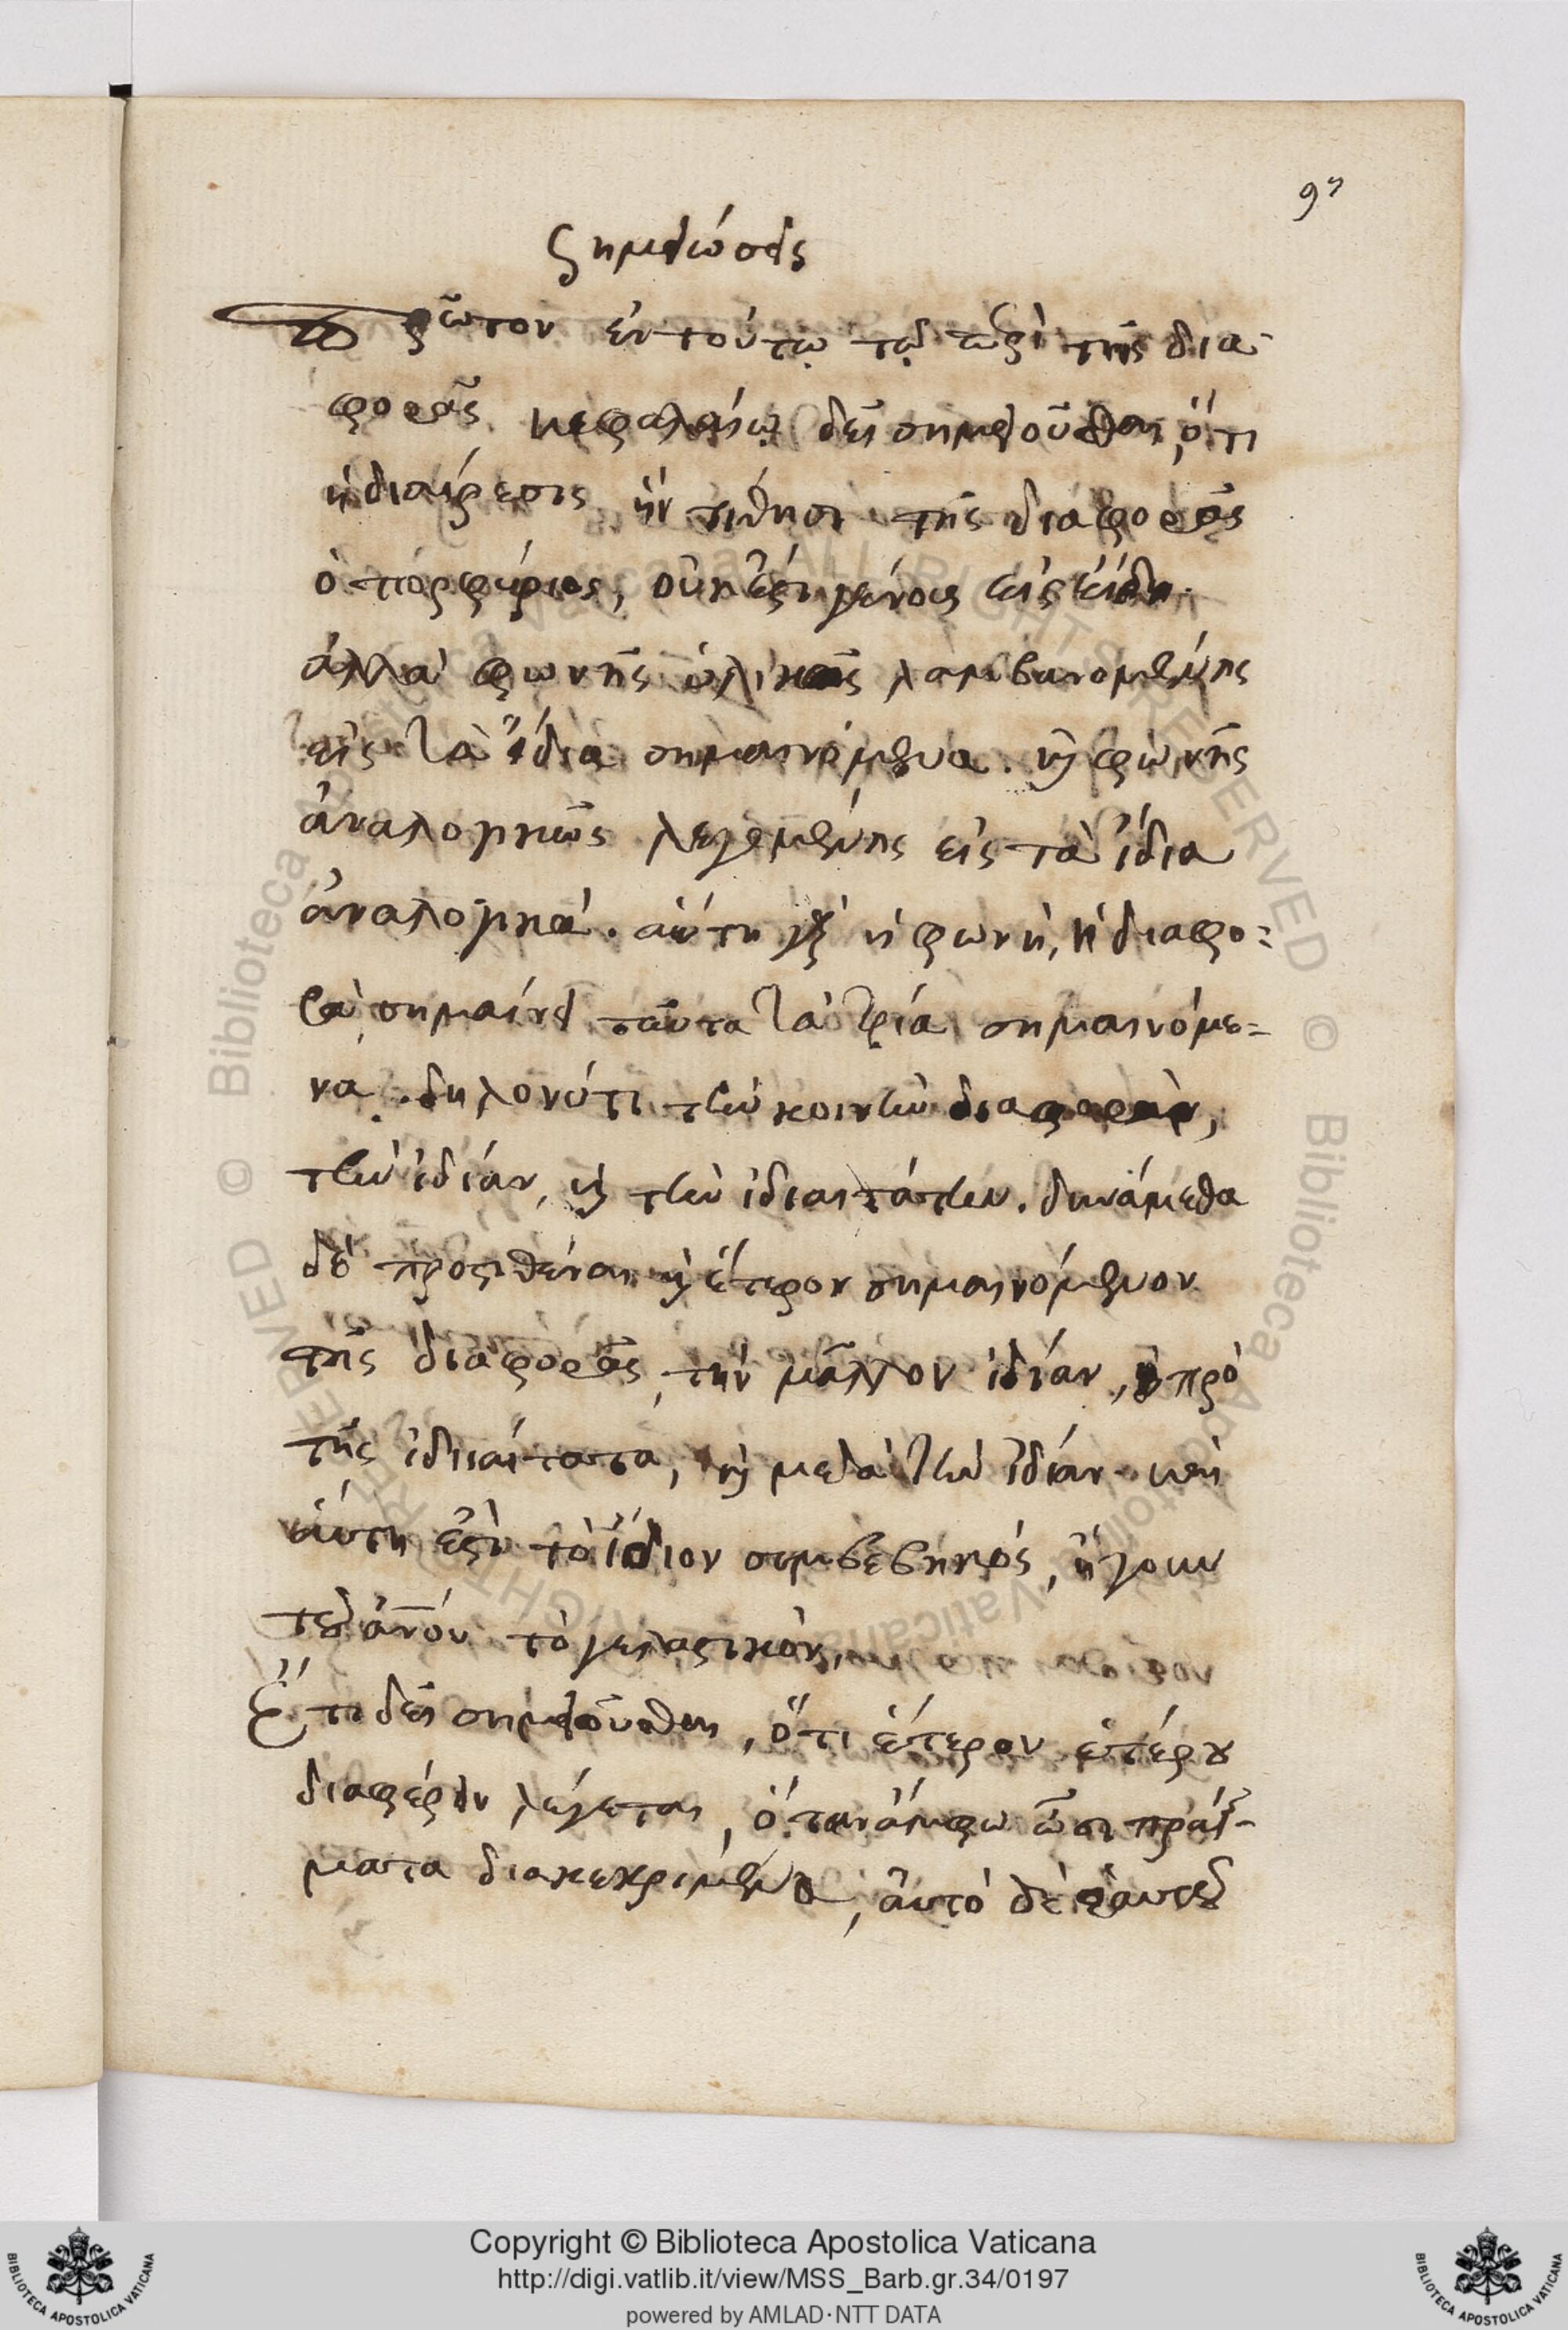 97
Σημειώσεις
Πρῶτον ἐν τούτῳ τῷ περὶ τῆς δια-
φορᾶς κεφαλαίῳ δεῖ σημειοῦσθαι, ὅτι
ἡ διαίρεσις ἣν τίθησι τῆς διαφορᾶς
ὁ πορφύριος, οὐκ ἔστι γένους εἰς εἴδη.
ἀλλὰ φωνῆς ὑλικῆς λαμβανομένης
εἰς τὰ ἴδια σημαινόμενα. καὶ φωνῆς
ἀναλογικῶς λεγομένης εἰς τὰ ἴδια
ἀναλογικά. αὕτη γὰρ ἡ φωνὴ, ἡ διαφο-
ρὰ σημαίνει ταῦτα τὰ τρία σημαινόμε-
να. δηλονότι τὴν κοινὴν διαφορὰν,
τὴν ἰδίαν, καὶ τὴν ἰδιαιτάτην. δυνάμεθα
δὲ προστιθέναι καὶ ἕτερον σημαινόμενον
τῆς διαφορᾶς, τὴν μᾶλλον ἰδίαν, πρὸ
τῆς ἰδιαίτατα, καὶ μετὰ τὴν ἰδίαν. καὶ
αὕτη ἐστὶ τὸ ἴδιον συμβεβηκός, ἤγουν
τοῦ ἀνοῦ τὸ γελαστικὸν.
Ἔτι δεῖ σημειοῦσθαι, ὅτι ἕτερον ἑτέρου
διαφέρειν λέγεται, ὅταν ἄμφω ὦσι πράγ-
ματα διακεκριμένα, αὐτὸ δὲ ἑαυτοῦ
Copyright © Biblioteca Apostolica Vaticana
http://digi.vatlib.it/view/MSS_Barb.gr.34/0197
powered by AMLAD·NTT DATA